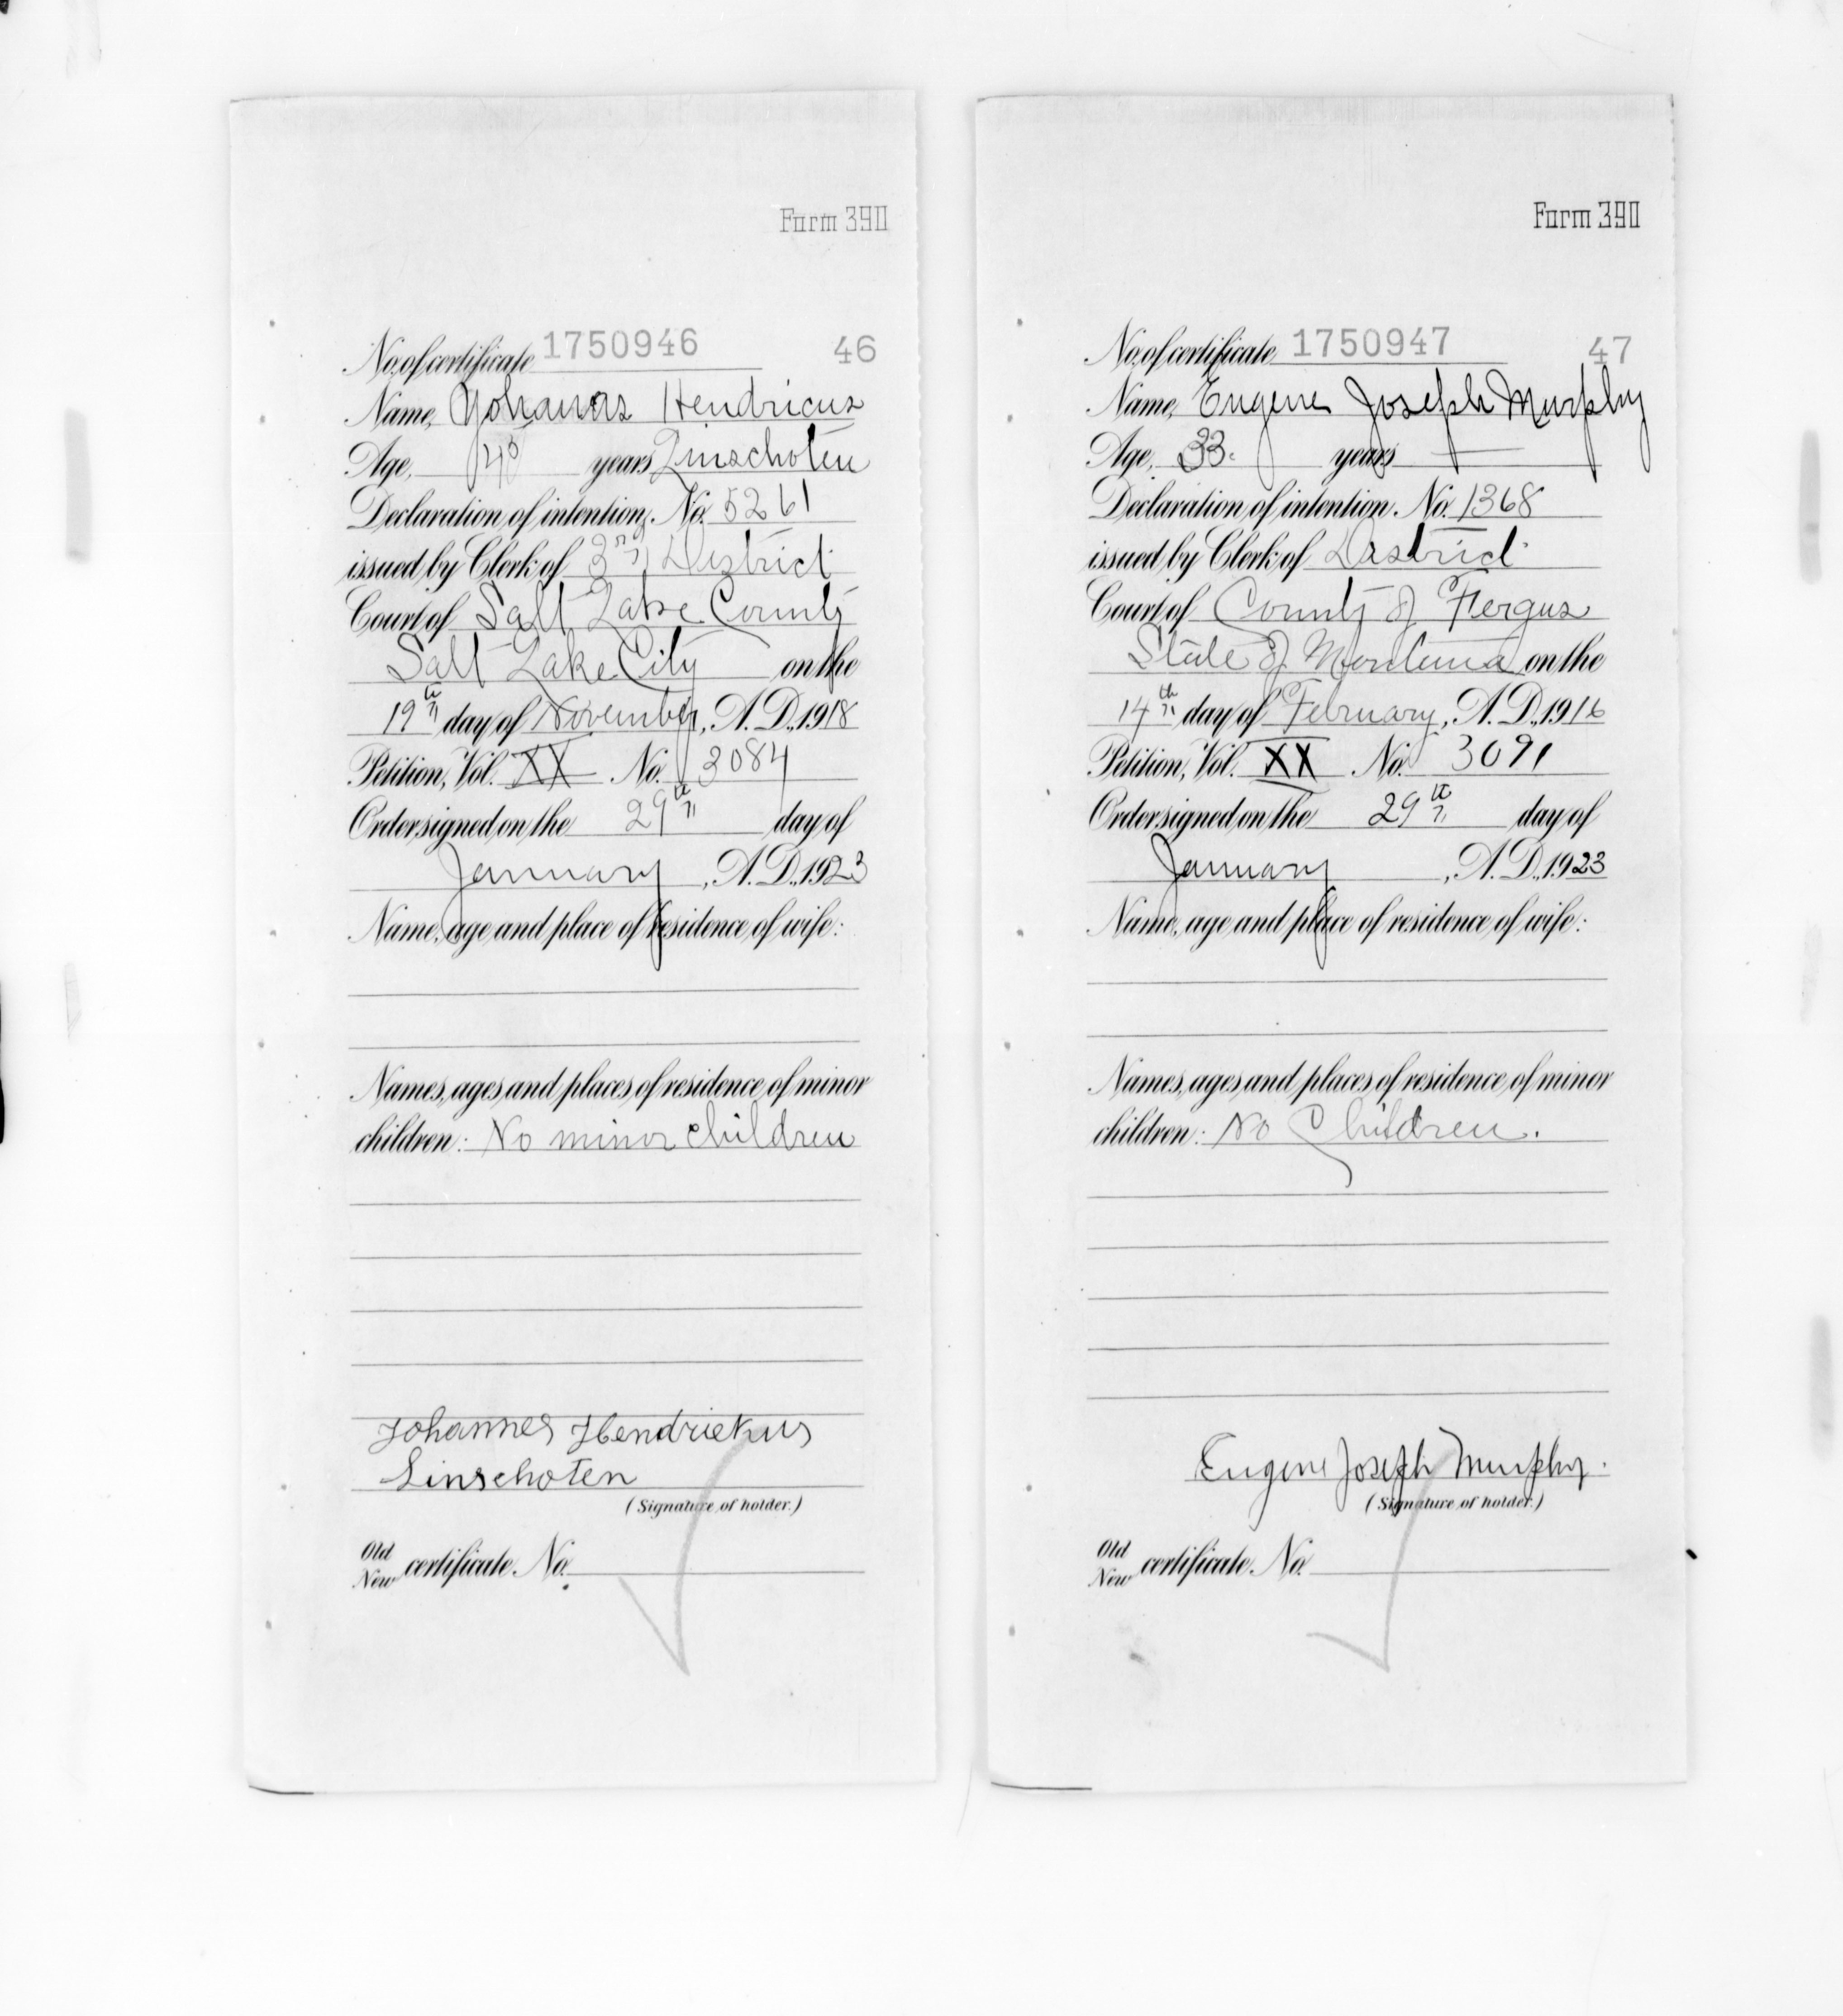 Form 390
No. of certificate 1750946 46
Name, Yohannas Hendricus
Age, 40 years Linschoten
Declaration of intention, No. 5261
issued by Clerk of 3rd District
Court of Salt Lake County
Salt Lake City on the
19th day of November, A.D. 1918
Petition, Vol. XX No. 3084
Order signed on the 29th day of
January, A.D. 1923
Name, age and place of residence of wife:
Names, ages and places of residence of minor
children: No minor children
Johannes Hendriekus
Linschoten
(Signature of holder.)
Old
New certificate No.
Form 390
No. of certificate 1750947 47
Name, Eugene Joseph Murphy
Age, 33. years
Declaration of intention, No. 1368
issued by Clerk of District
Court of County of Fergus
State of Montana on the
14th day of February, A.D. 1916
Petition, Vol. XX No. 3091
Order signed on the 29th day of
January, A.D. 1923
Name, age and place of residence of wife:
Names, ages and places of residence of minor
children: No Children.
Eugene Joseph Murphy.
(Signature of holder.)
Old
New certificate No.